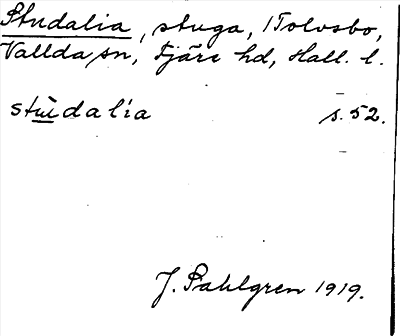 Studalia, stuga, i Tolvsbo,
Vallda sn, Fjäre hd, Hall. l.
stùdalia s. 52.
J. Sahlgren 1919.